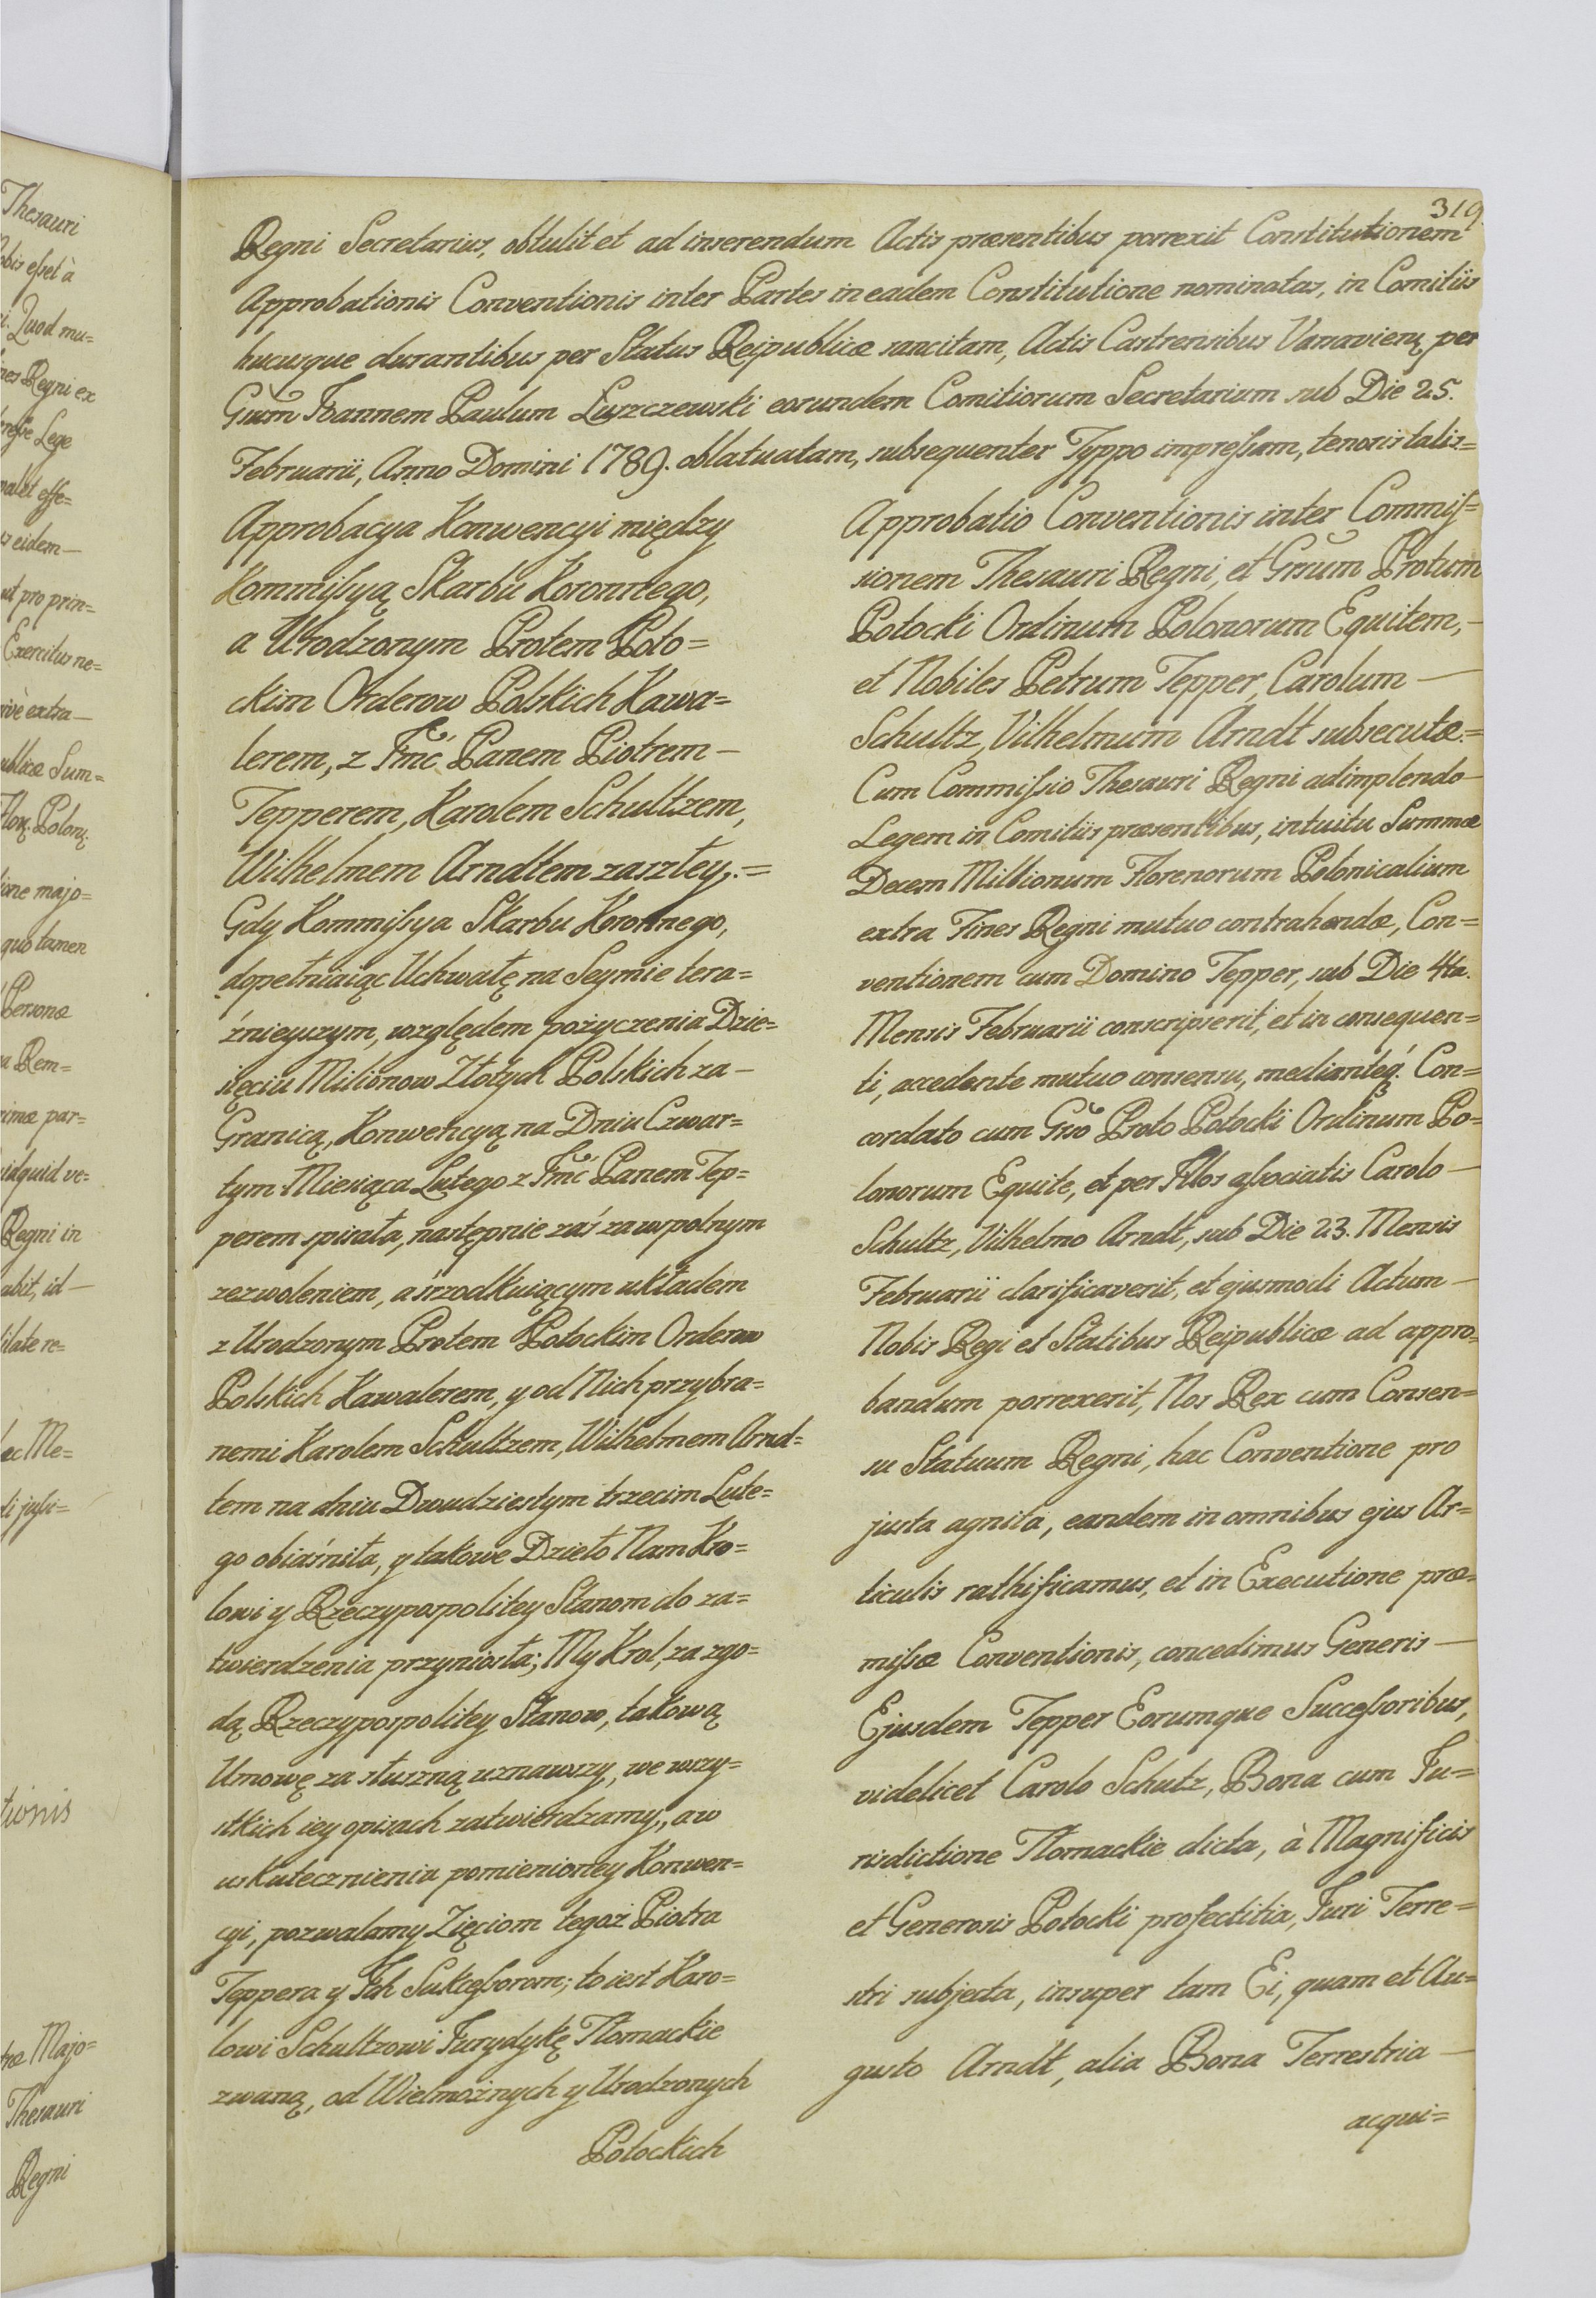 319
Regni Secretarius, obtulit et ad inserendum Actis præsentibus porrexit Constitutionem
Approbationis Conventionis inter Partes in eadem Constitutione nominatas, in Comitiis
hucusque durantibus per Status Reipublicæ sancitam, Actis Castrensibus Varsavien: per
Gnum Joannem Paulum Łuszczewski eorundem Comitiorum Secretarium sub Die 25.
Februarii, Anno Domini 1789. oblatuatam, subsequenter Typpo impreſsam, tenoris talis:=
Approbacya Konwencyi między
Kommiſsyą Skarbu Koronnego,
a Urodzonym Protem Poto=
ckim Orderow Polskich Kawa=
lerem, z Jmć Panem Piotrem —
Tepperem, Karolem Schultzem,
Wilhelmem Arndtem zaszłey.=
Gdy Kommiſsya Skarbu Koronnego,
dopełniaiąc Uchwałę na Seymie tera=
źnieyszym, względem pożyczenia Dzie=
sięciu Milionow Złotych Polskich za —
Granicą, Konwencyą na Dniu Czwar=
tym Miesiąca Lutego z Jmć Panem Tep=
perem spisała, następnie zaś za wspolnym
zezwoleniem, a śrzodkuiącym układem
z Urodzonym Protem Potockim Orderow
Polskich Kawalerem, y od Nich przybra=
nemi Karolem Schultzem, Wilhelmem Arnd=
tem na dniu Dwudziestym trzecim Lute=
go obiaśniła, y takowe Dzieło Nam Kro=
lowi y Rzeczypospolitey Stanom do za=
twierdzenia przyniosła; My Krol, za zgo=
dą Rzeczypospolitey Stanow, takową
Umowę za słuszną uznawszy, we wszy=
stkich iey opisach zatwierdzamy, a w
uskutecznieniu pomienioney Konwen=
cyi, pozwalamy Zięciom tegoż Piotra
Teppera y Jch Sukceſsorom; to iest Karo=
lowi Schultzowi Jurydykę Tłomackie
zwaną, od Wielmożnych y Urodzonych
Potockich
Approbatio Conventionis inter Commiſ=
sionem Thesauri Regni, et Gnsum Protum
Potocki Ordinum Polonorum Equitem, —
et Nobiles Petrum Tepper, Carolum —
Schultz, Vilhelmum Arndt subsecutæ:=
Cum Commiſsio Thesauri Regni adimplendo
Legem in Comitiis præsentibus, intuitu Summæ
Decem Millionum Florenorum Polonicalium
extra Fines Regni mutuo contrahendæ, Con=
ventionem cum Domino Tepper, sub Die 4ta.
Mensis Februarii conscripserit, et in consequen=
ti, accedente mutuo consensu, medianteq. Con=
cordato cum Gnso Proto Potocki Ordinum Po=
lonorum Equite, et per Illos aſsociatis Carolo —
Schultz, Vilhelmo Arndt, sub Die 23. Mensis
Februarii clarificaverit, et ejusmodi Actum —
Nobis Regi et Statibus Reipublicæ ad appro=
bandum porrexerit, Nos Rex cum Consen=
su Statuum Regni, hac Conventione pro
justa agnita, eandem in omnibus ejus Ar=
ticulis rathificamus, et in Executione præ=
miſsæ Conventionis, concedimus Generis —
Ejusdem Tepper Eorumque Succeſsoribus,
videlicet Carolo Schutz, Bona cum Ju=
risdictione Tłomackie dicta, à Magnificis
et Generosis Potocki profectitia, Juri Terre=
stri subjecta, insuper tam Ei, quam et Au=
gusto Arndt, alia Bona Terrestria —
acqui=